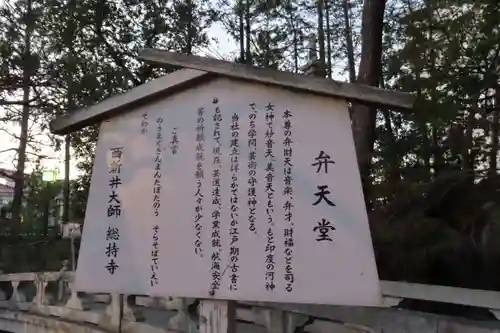 弁天堂
本尊の弁財天は音楽、弁才、財福などを司る
女神で妙音天、美音天ともいう。もと印度の河神
で、のち学問・芸術の守護神となる。
当社の建立は詳らかではないが江戸期の古書に
も記されて、現在、芸道達成、学業成就、航海安全
等の祈願成就を願う人々が少なくない。
ご真言
のうまくさんまんだぼだのう そらそばていえい
そわか
西新井大師 総持寺